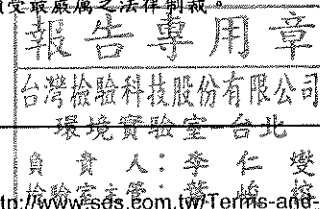 受最嚴厲之法律制裁。
報告專用章
台灣檢驗科技股份有限公司
環境實驗室-台北
負責人：李仁燮
檢驗室主管：葉
tp://www.sgs.com.tw/Terms-and-